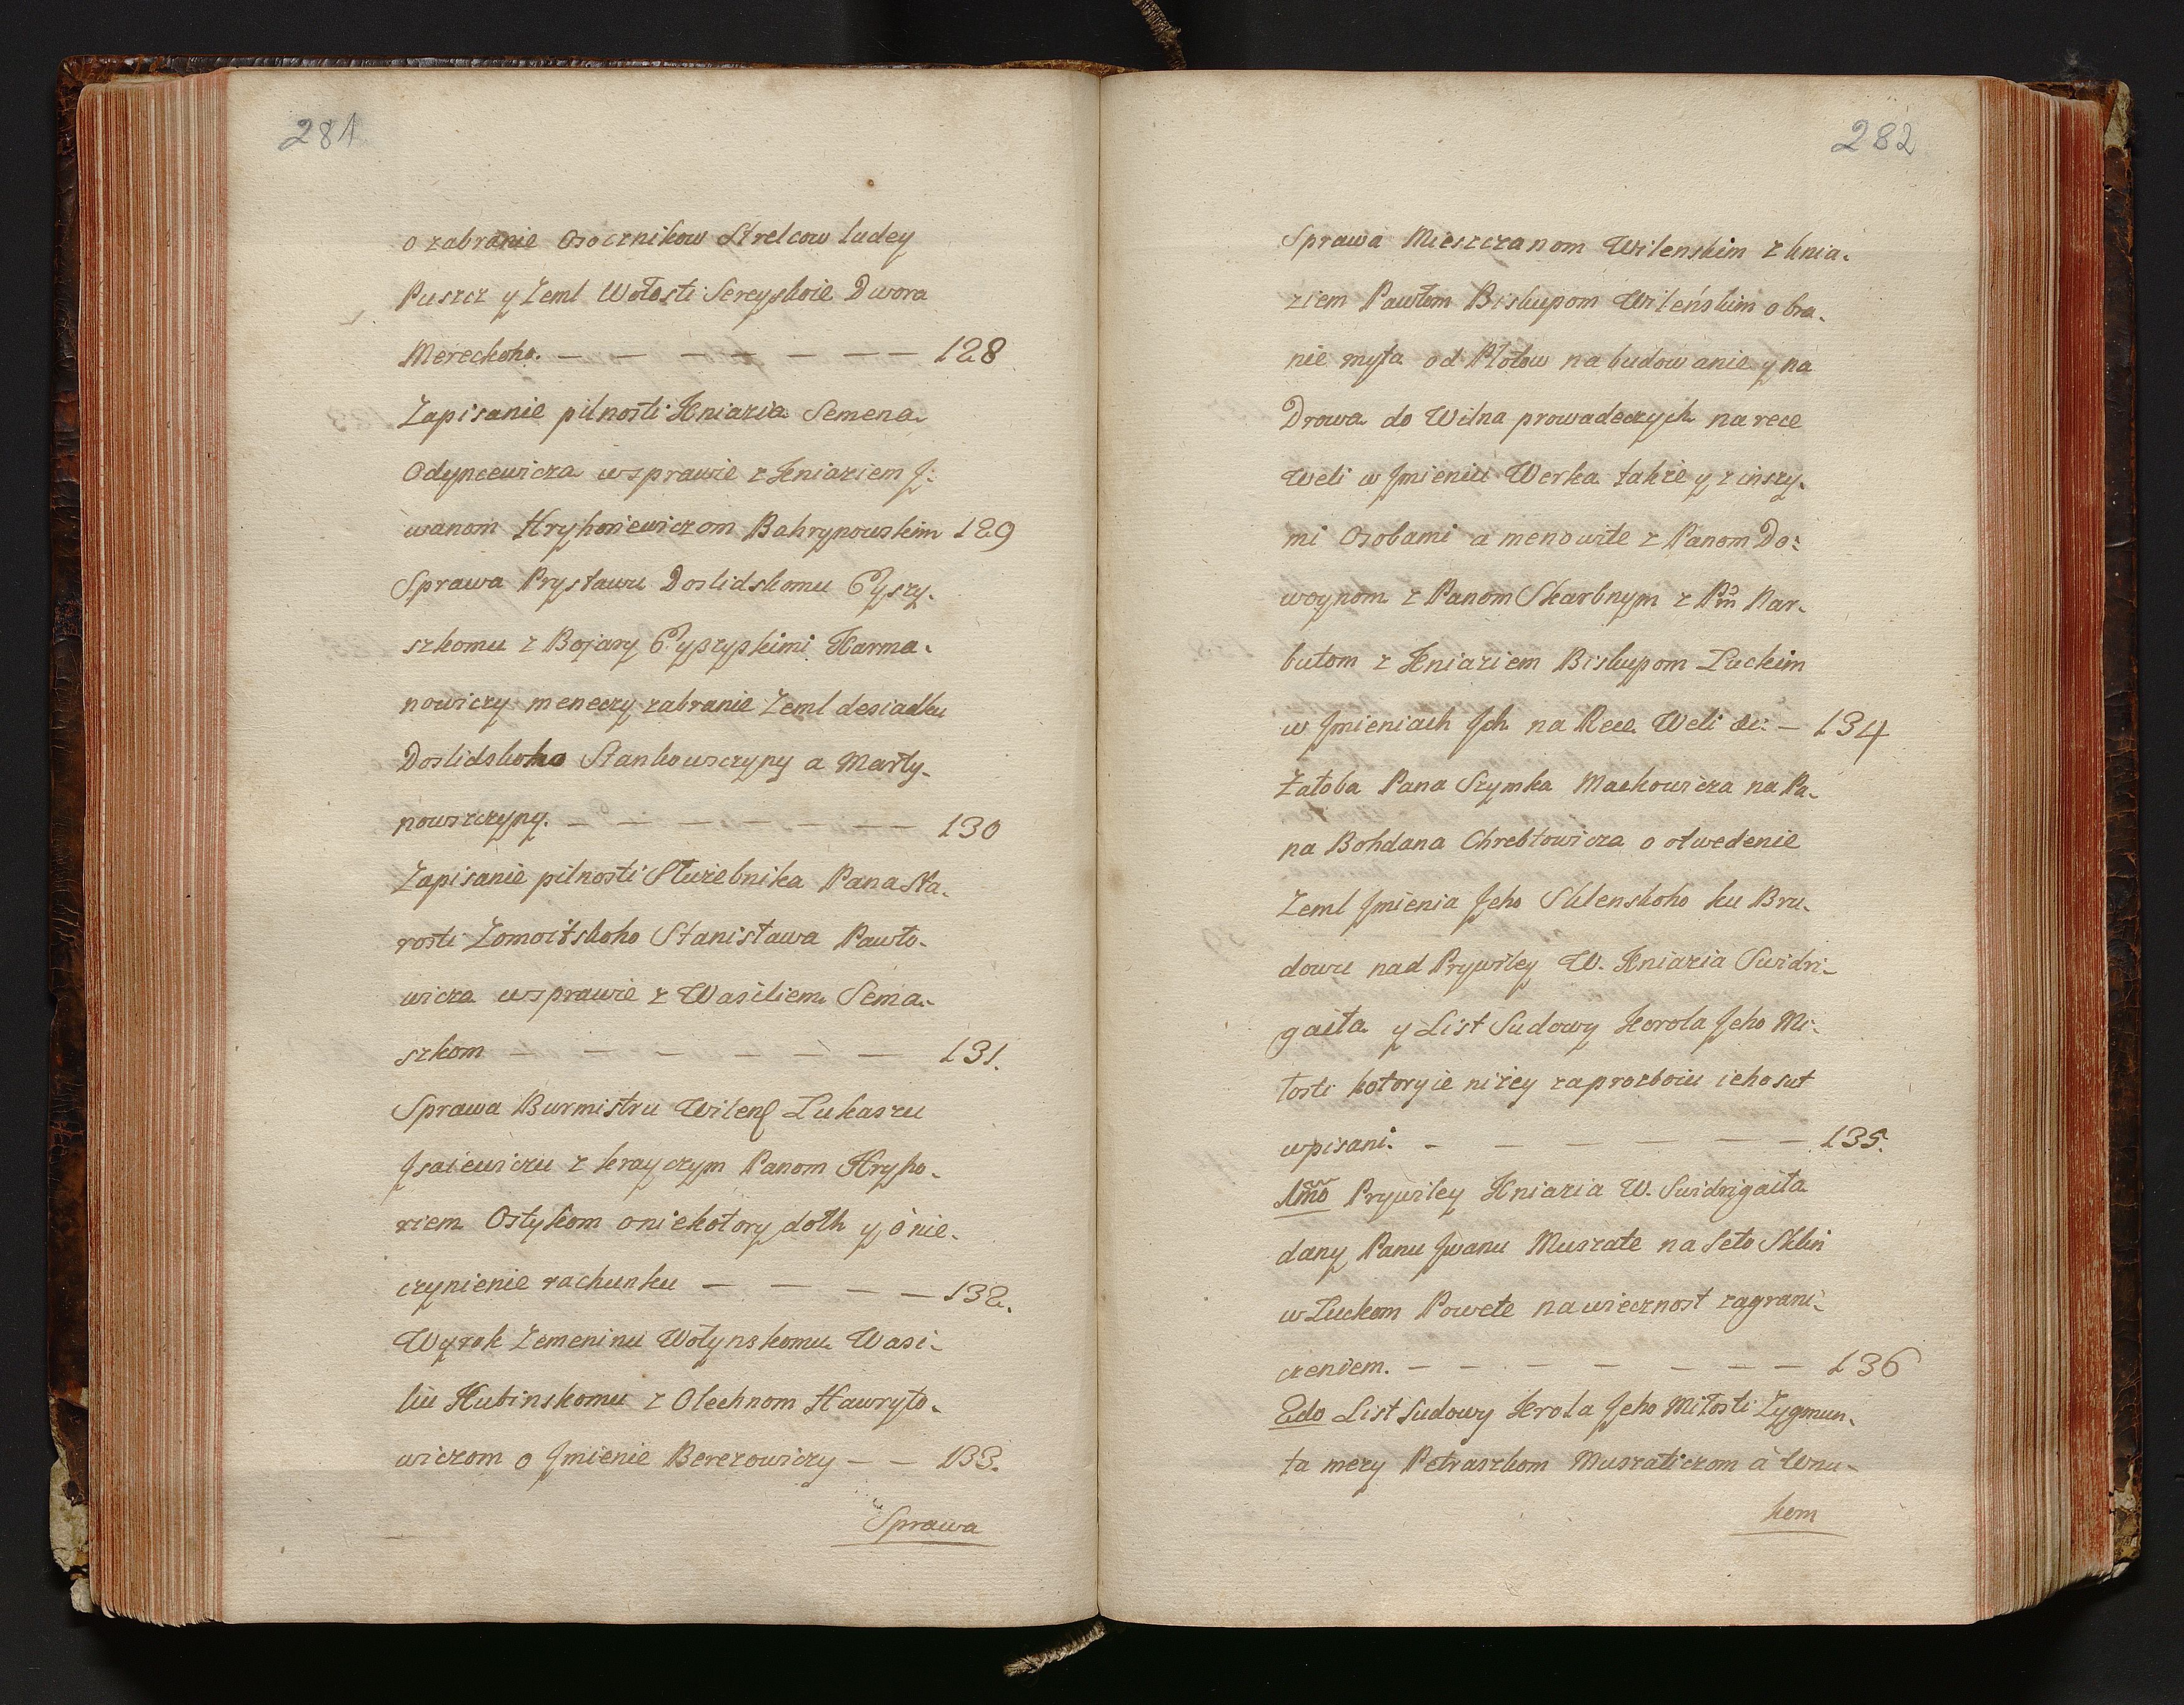 281
o zabranie Osocznikow Strelcow ludey
Puszcz y Zeml Wołosti Sereyskoie Dwora
Mereckoho. — — — — — — — 128
Zapisanie pilnosti Kniazia Semena
Odyncewicza wsprawie z Kniaziem J:
wanom Hryhoriewiczom Bahrynowskim 129
Sprawa Prystawu Doslidskomu
szkomu z Bojary Harma-
nowiczy meneczy zabranie Zeml desiadku
Doslidskoho Stankowsczyny a Marty-
nowszczyny. — — — — — — — 130
Zapisanie pilnosti Służebnika Pana Sta-
rosti Zomoitskoho Stanisława Pawło-
wicza wsprawie z Wasiliem Sema-
szkom — — — — — — — 131.
Sprawa Burmistru Wilens Łukaszu
Jsaiewiczu z krayczym Panom Hryho-
riem Ostykom o niekotory dolh y o nie-
czynienie rachunku — — — — 132.
Wyrok Zemeninu Wołynskomu Wasi-
liu Hubinskomu z Olechnom Hawryło-
wiczom o Jmienie Berezowiczy — — 133.
Sprawa
282
Sprawa Mieszczanom Wilenskim z knia-
ziem Pawłom Biskupom Wileńskim o bra-
nie myta od Płotow na budowanie y na
Drowa do Wilna prowadeczych na rece
Weli w Jmieniu Werka także y z inszy-
mi Osobami a menowite z Panom Do:
woynom z Panom Skarbnym z Pm Nar-
butom z Kniaziem Biskupom Łuckim
w Jmieniach Jch na Rece Weli &c: — 134
Załoba Pana Szymka Mackowicza na Pa-
na Bohdana Chrebtowicza o otwedenie
Zeml Jmienia Jeho Sklenskoho ku Bru-
dowu nad Prywiley W. Kniazia Swidri-
gaiła y List Sudowy Korola Jeho Mi-
łosti kotoryie niżey za prozboiu ieho sut
wpisani. — — — — — — 135.
1mo Prywiley Kniazia W. Swidrigaiła
dany Panu Jwanu Muszate na Seło Sklin
w Łuckom Powete na wiecznost zagrani-
czeniem. — — — — — — — 136
2do List Sudowy Krola Jeho Miłosti Zygmun-
ta mezy Petraszkom Muszaticzom a Wnu-
kom